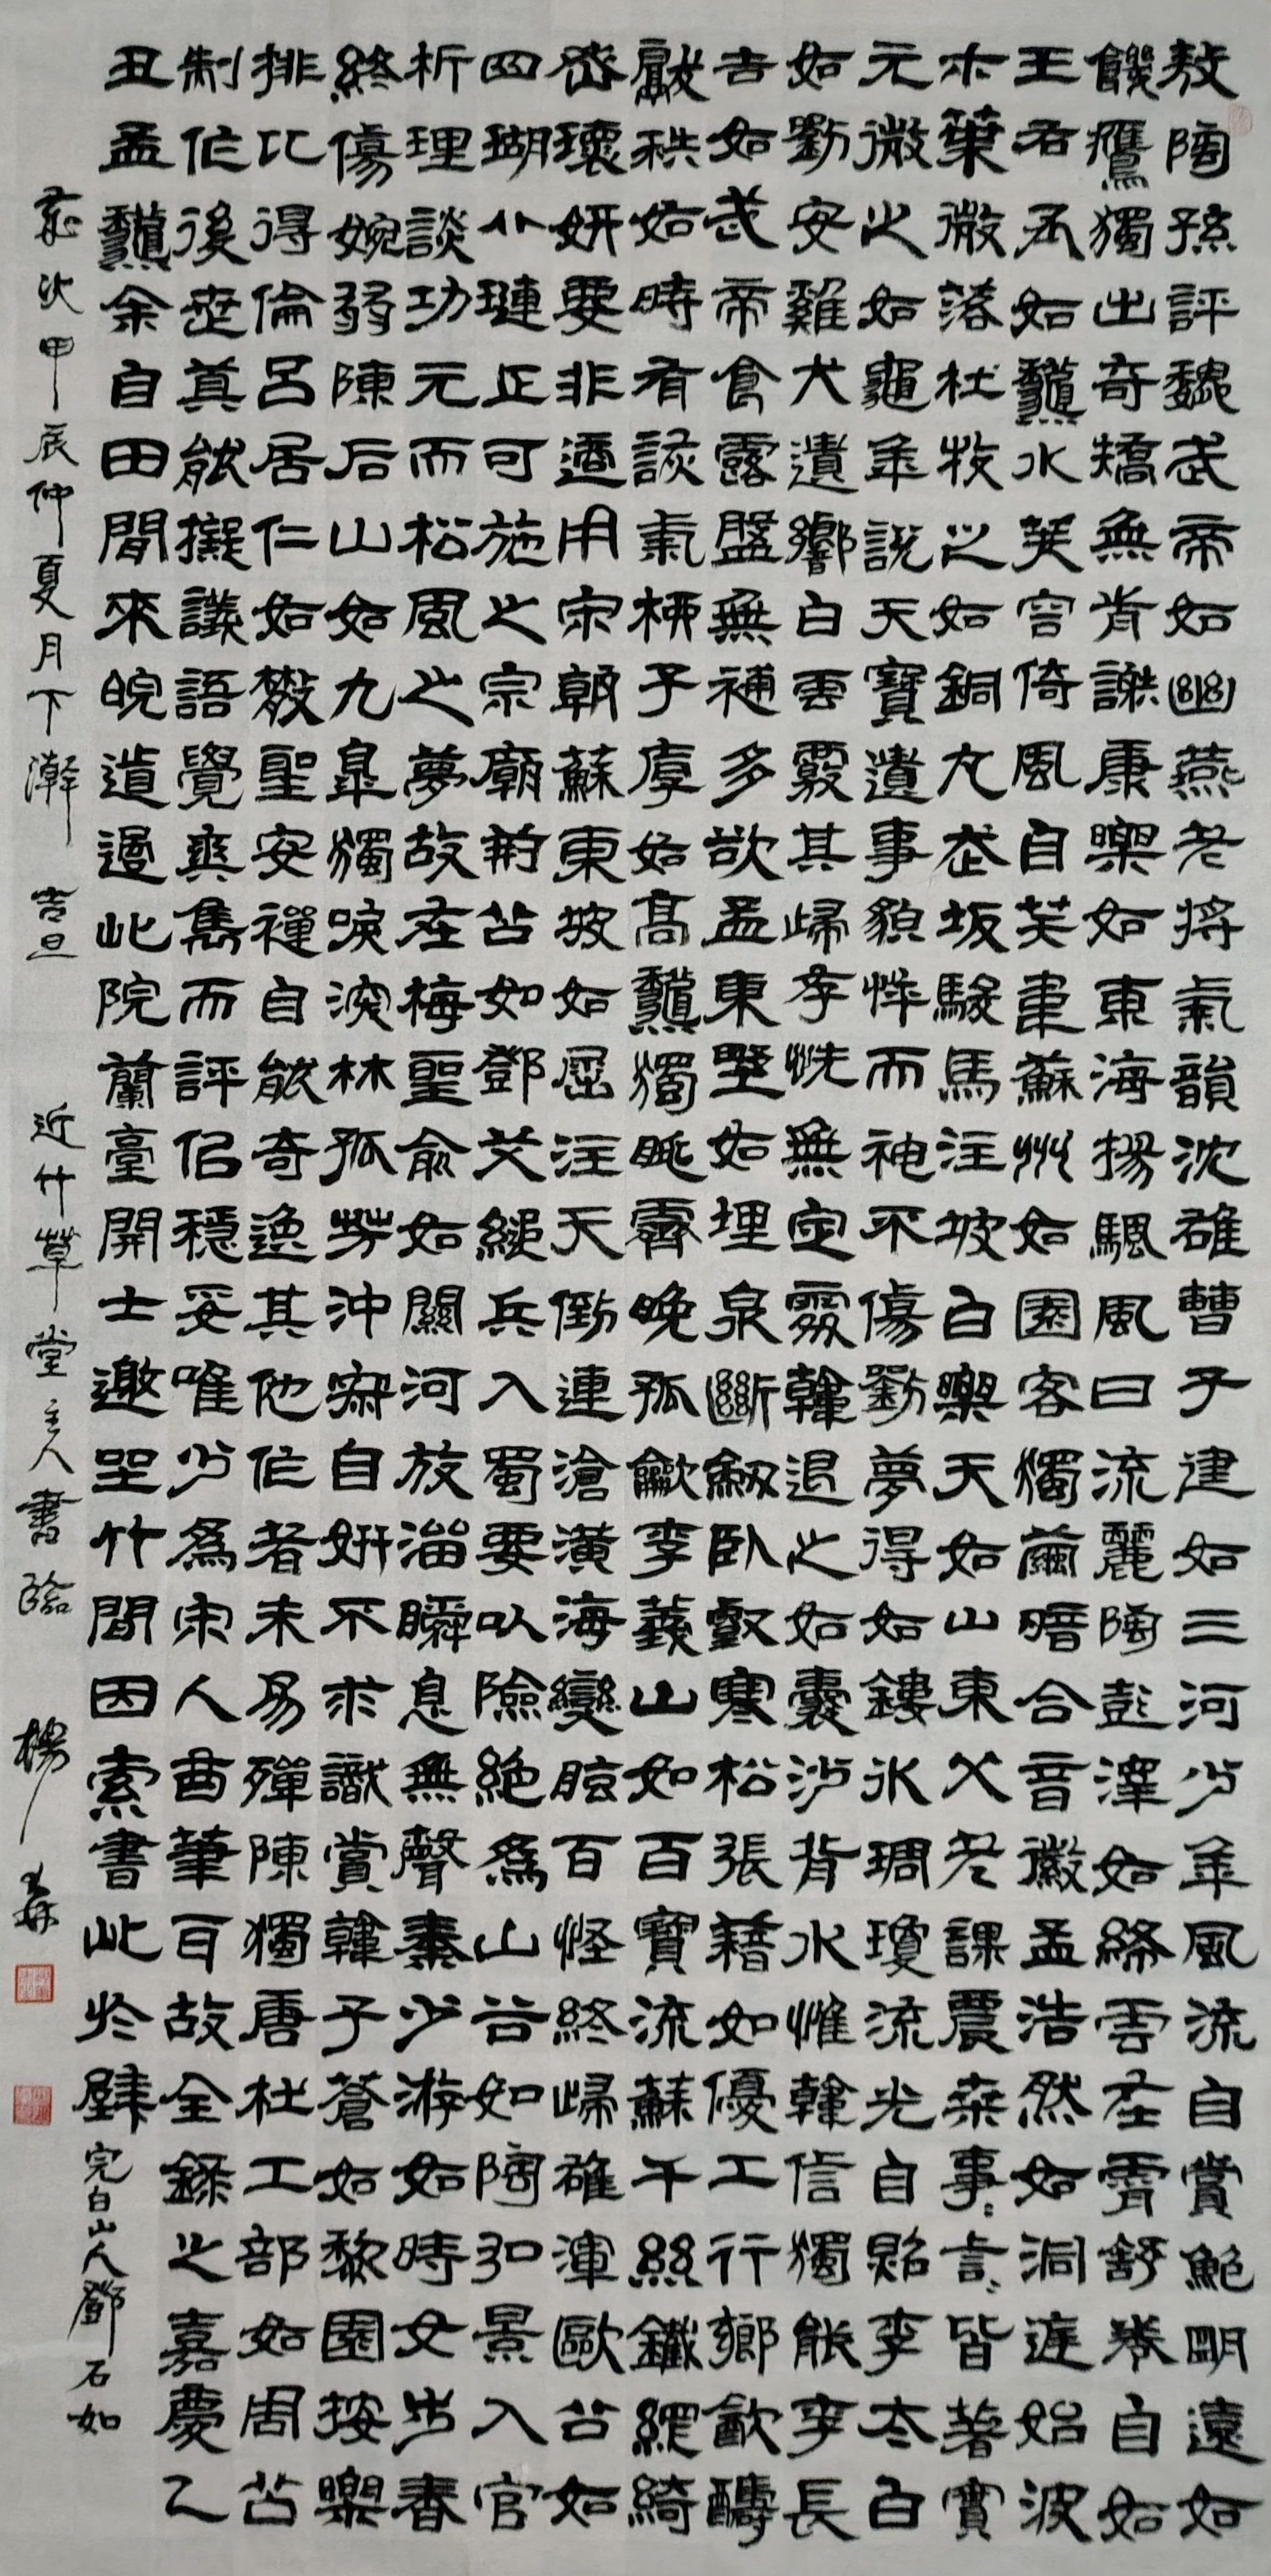 敖陶孫評魏武帝如幽燕老將氣韻沈雄曹子建如三河少年風流自賞鮑明遠如
饑鷹獨出奇矯無前謝康樂如東海揚颿風日流麗陶彭澤如絳雲在霄舒卷自如
王右丞如秋水芙蓉倚風自笑韋蘇州如園客獨繭暗合音徽孟浩然如洞庭始波
木葉微落杜牧之如銅丸走坂駿馬注坡白樂天如山東父老課農桑事事言言皆著實
元微之如龜年說天寶遺事貌悴而神不傷劉夢得如鏤冰琱瓊流光自照李太白
如劉安雞犬遺響白雲覈其歸存恍無定處韓退之如囊沙背水惟韓信獨能李長
吉如武帝食露盤無補多欲孟東野如埋泉斷劍臥壑寒松張籍如優工行鄉飲醻
獻秩如時有詼氣柳子厚如高秋獨眺霽晚孤吹李義山如百寶流蘇千絲鐵網綺
密瓌妍要非適用宋朝蘇東坡如屈注天倒連滄潢海變眩百怪終歸雄渾歐公如
四瑚八璉正可施之宗廟荊公如鄧艾縋兵入蜀要以險絕為山谷如陶弘景入官
析理談功元而松風之夢故在梅聖俞如關河放溜瞬息無聲秦少游如時女步春
終傷婉弱陳后山如九皋獨唳深林孤芳沖寂自妍不求識賞韓子蒼如黎園按樂
排比得倫呂居仁如散聖安禪自能奇逸其他作者未易殫陳獨唐杜工部如周公
制作後世莫能擬議語覺爽雋而評似穩妥唯少為宋人曲筆耳故全錄之嘉慶乙
丑孟秋余自田間來皖道過此院蘭臺開士邀坐竹間因索書此於壁 完白山人鄧石如
歲次甲辰仲夏月下澣 吉旦 近竹草堂主人書臨 楊